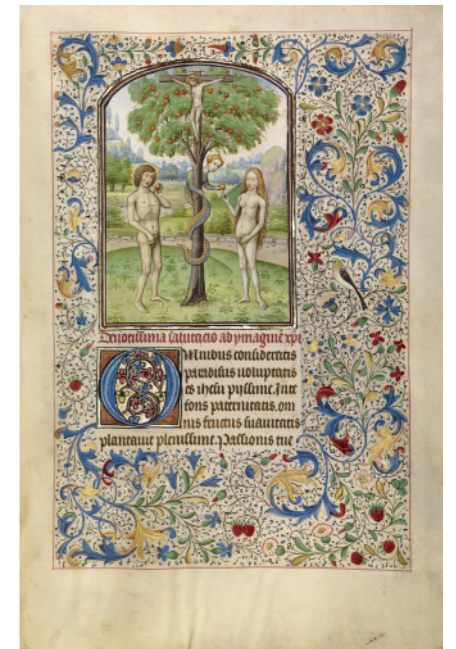 Deuotissima salutacio ad ymagine xpi
Omnibus consideratis
paradisus uoluptatis
es ihesu pijssime. Inte
fons paternitatis. om
nis fructus suauitatis
plantauit plenissime. Passionis tue